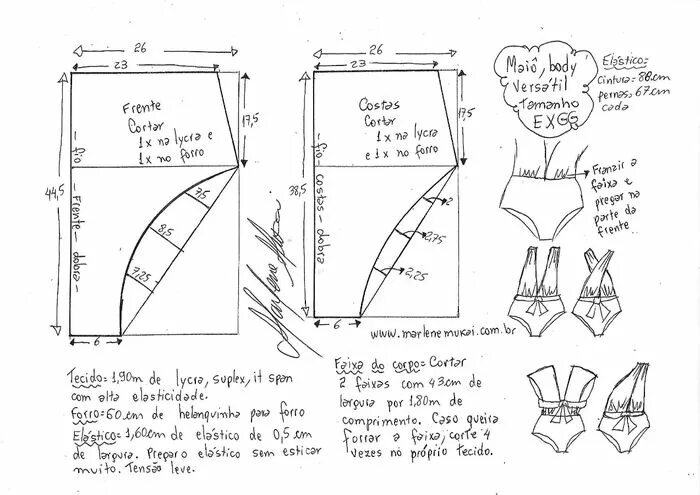 26
23
Frente
Cortar
1x na lycra e
1x no forro
17,5
44,5
fio
Frente - dobra
7,5
8,5
7,25
6
26
23
Costas
Cortar
1x na lycra
e 1x no forro
17,5
38,5
fio - costas - dobra
2
2,75
2,25
6
Marlene Mukai
www.marlenemukai.com.br
Maiô, body
versátil
Tamanho
EXGG
Elástico=
cintura=88cm
pernas=67cm
cada
Franzir a
faixa e
pregar na
parte da
frente
Tecido=1,90m de lycra, suplex, it span
com alta elasticidade.
Forro=60cm de helanquinha para forro
Elástico=1,60cm de elástico de 0,5cm
de largura. Pregar o elástico sem esticar
muito. Tensão leve.
Faixa do corpo= Cortar
2 faixas com 43cm de
largura por 1,80m de
comprimento. Caso queira
forrar a faixa, corte 4
vezes no próprio tecido.